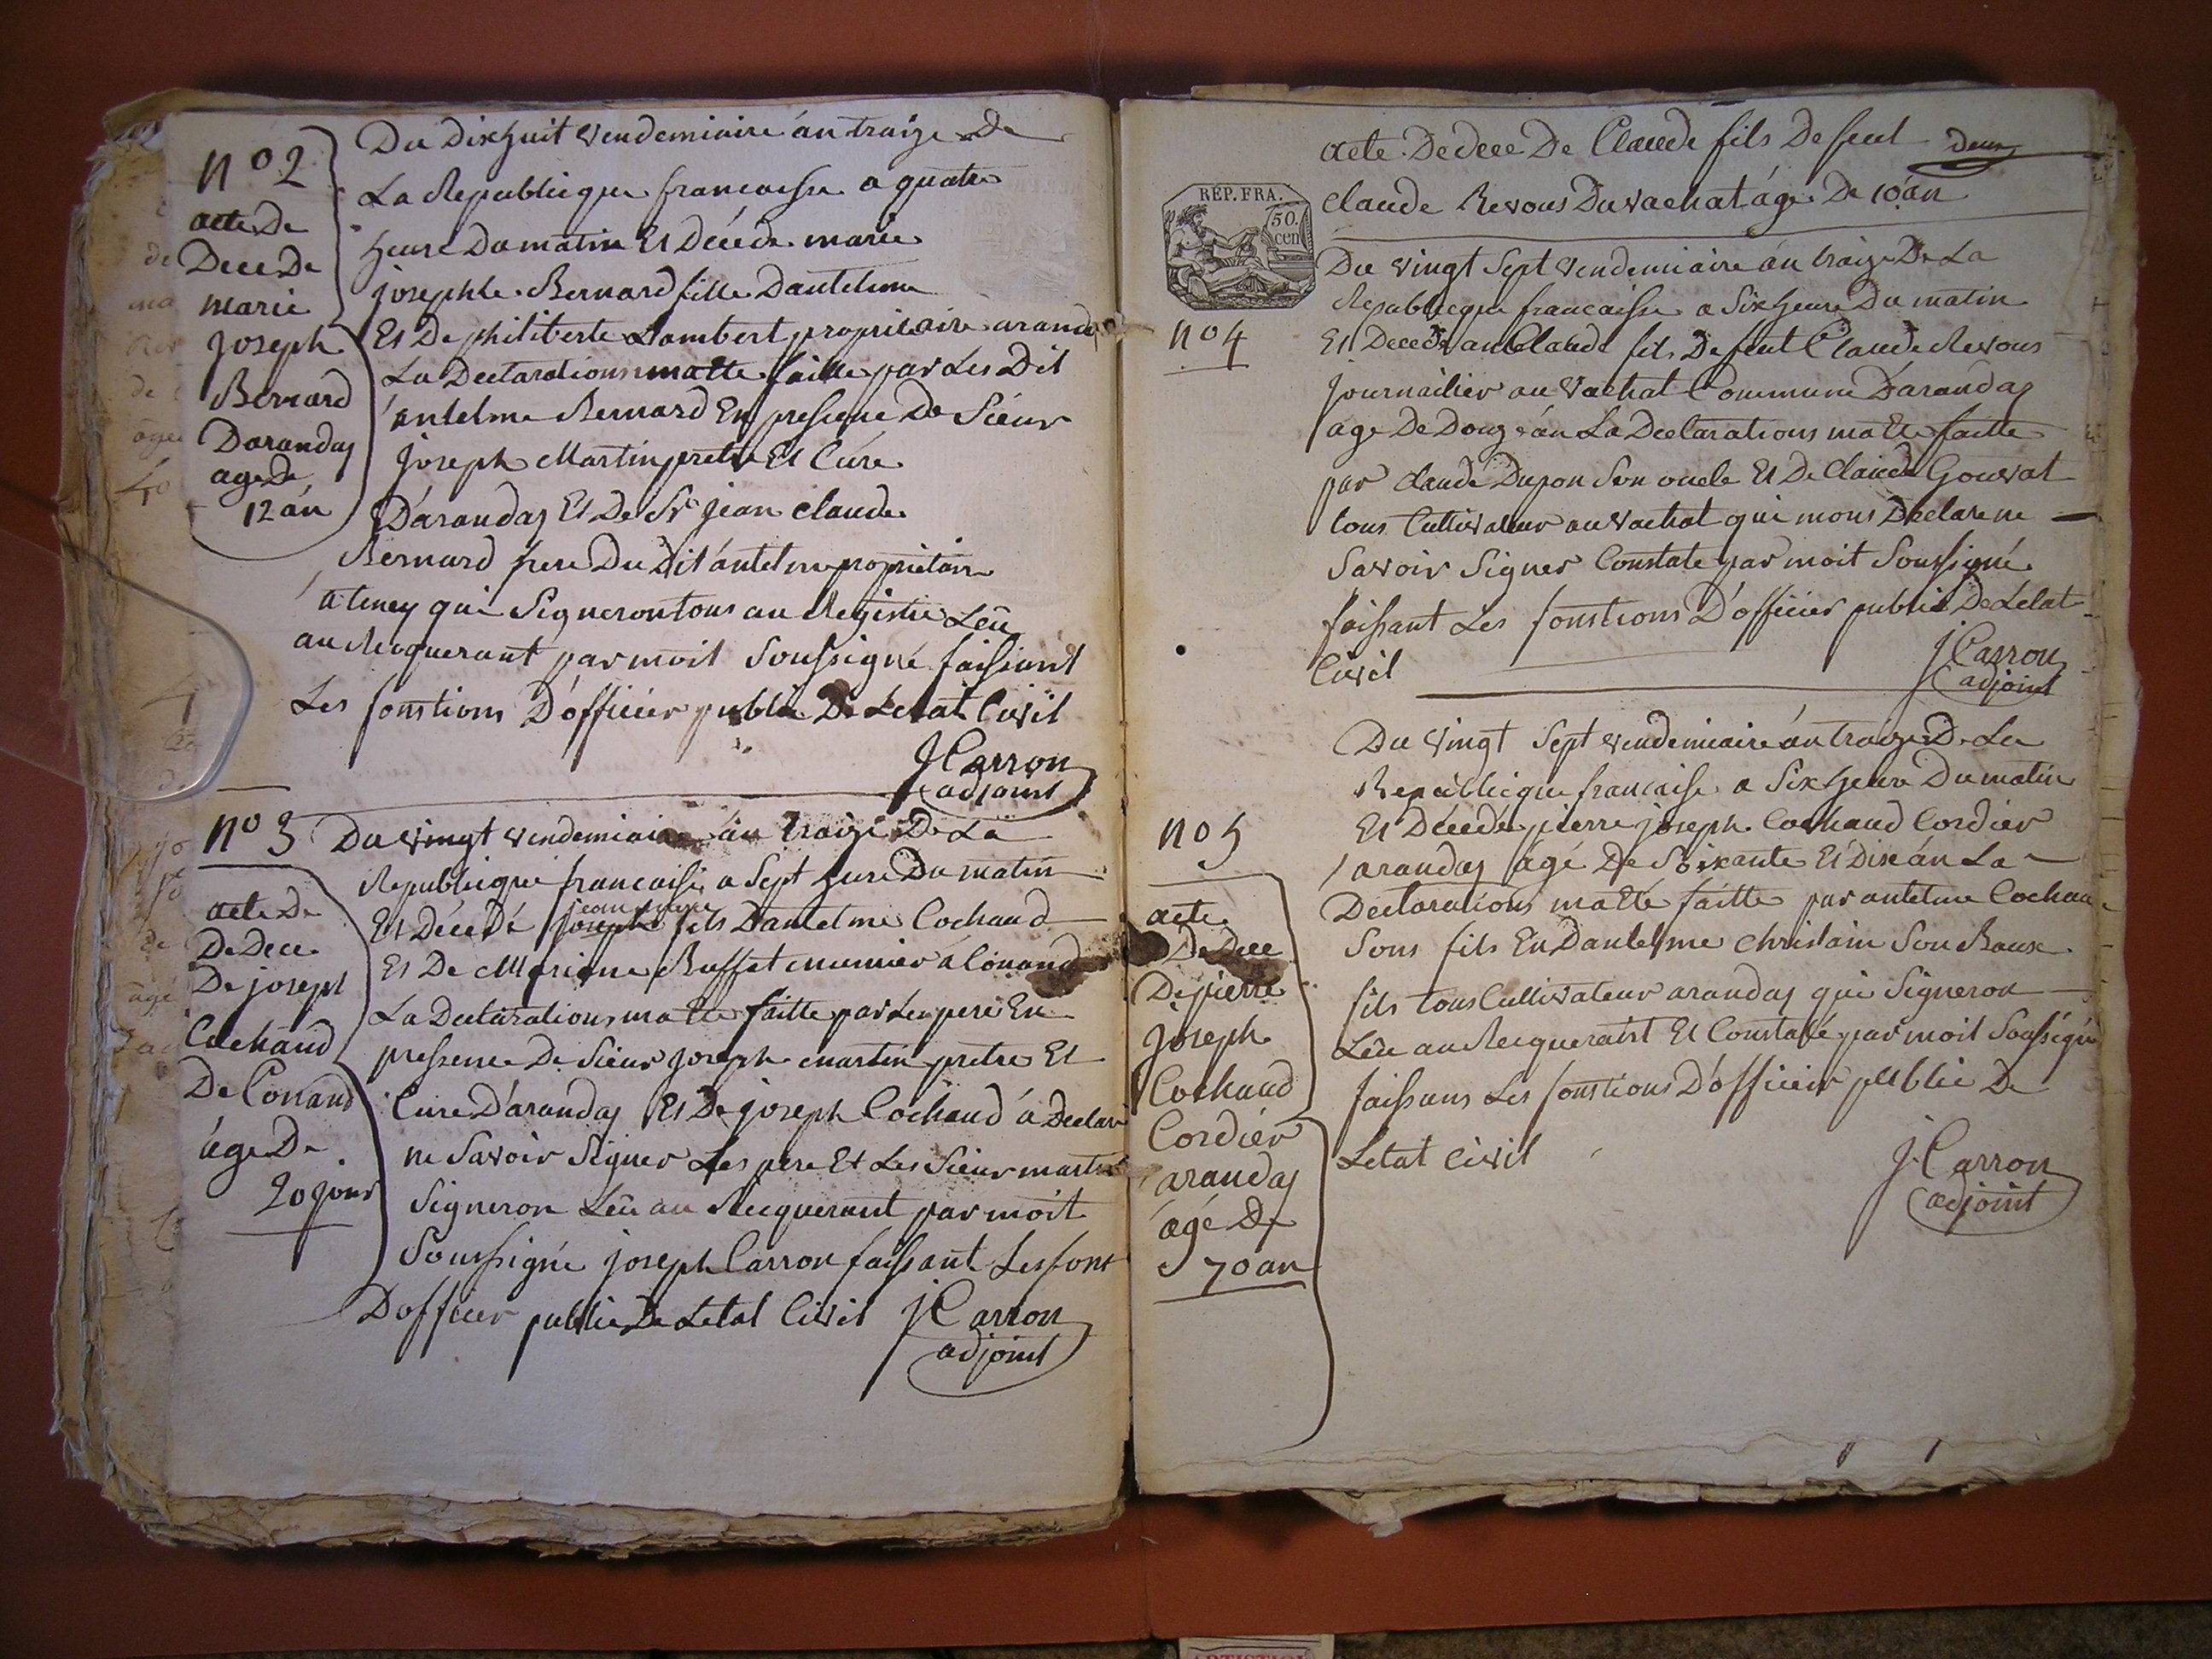 n° 2
acte De
Dece De
marie
joseph
Bernard
Darandas
age De
12 án
Du Dixhuit vendemiaire án traize De
La Republicque francaisse a quatre
heure Du matin Et Décédé marie
josephte Bernard fille Dantelme
Et De philiberte Lambert propriétaire arandas
La Declarations matte faitte par Les Dit
antelme Bernard En pressence De Sieur
joseph Martin pretre Et Curé
D'arandas Et De Sr jean claude
Bernard frere Du Dit ántelme propriétaire
a teney qui Signeront tous au Registre Leû
au Recquerant par moit Soussigné faissant
Les fonstions D'officier public De Letat Civil
J Carron
adjoint
n° 3
acte De
De Dece
De joseph
Cochaud
De Conand
áge De
20 jour
Du vingt vendemiaire án traize De La
Republicque francaisse a Sept hure Du matin
jean
Et Décédé joseph fils Dantelme Cochaud
Et De Mariane Buffet munier á Conand
La Declarations matte faitte par Le pere En
pressence De Sieur joseph martin pretre Et
Cure D'arandas Et De joseph Cochaud á Declare
ne Savoir Signer Les pere Et Les Sieur martin
Signeron Leû au Recquerant par moit
Soussigné joseph Carron faissant Les fonst
D'officier public De Letat Civil
J Carron
adjoint
deux
acte De dece De Claude fils De feut
claude Revous Du vachat ágé De 10 án
REP. FRA.
50.
cen
n° 4
Du vingt Sept vendemiaire án traize De La
Republicque francaisse a Six heure Du matin
Et Decedé Claude fils De feut Claude Revous
journailier au vachat Commune D'arandas
age De Douz án La Declarations matte faitte
par claude Dupon Son oncle Et De Claude Gouvat
tous Cultivateur au vachat qui mons Declare ne
Savoir Signer Constate par moit Soussigné
faissant Les fonstions D'officier public De Létat
Civil
J Carron
adjoint
n° 5
acte
De Dece
De pierre
joseph
Cochaud
Cordier
arandas
ágé De
70 an
Du vingt Sept vendemiaire án traize De La
Republicque francaisse a Six heure Du matin
Et Décédé pierre joseph Cochaud Cordier
arandas ágé De Soixante Et Dix án La
Declarations matté faitte par antelme Cochaud
Sons fils En Dantelme christain Son Beaux
fils tous Cultivateur arandas qui Signeron
Leûe au Recquerant Et Constaté par moit Soussigné
faissans Les fonstions D'officier public De
Letat Civil
J. Carron
adjoint